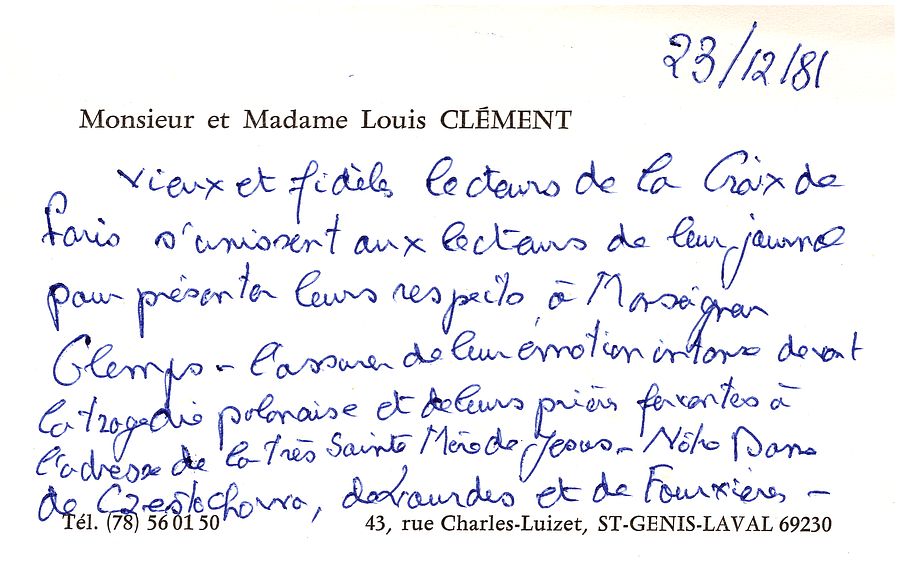 23/12/81
Monsieur et Madame Louis CLÉMENT
Vieux et fidèles lecteurs de la Croix de
Paris s'unissent aux lecteurs de leur journal
pour présenter leurs respects à Monseigneur
Glemp - l'assurer de leur émotion intense devant
la tragédie polonaise et de leurs prières ferventes à
l'adresse de la Très Sainte Mère de Jésus - Nôtre Dame
de Czestochowa, de Lourdes et de Fourvières -
Tél. (78) 56 01 50 43, rue Charles-Luizet, ST-GENIS-LAVAL 69230